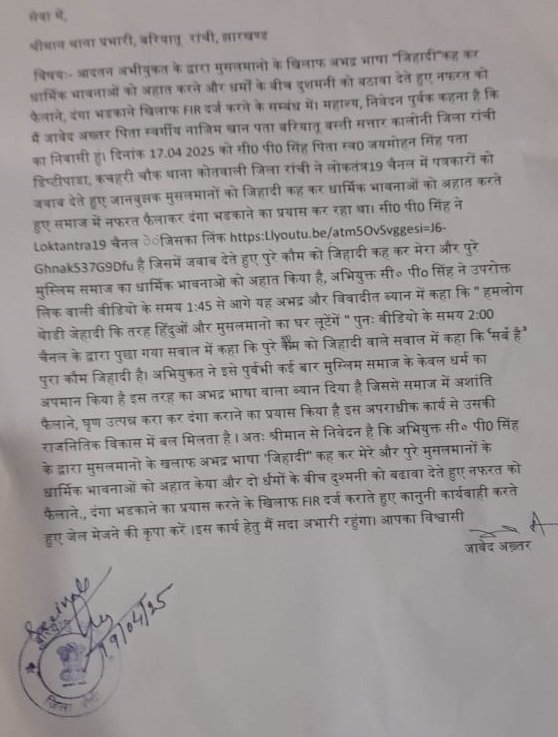 सेवा में,
श्रीमान थाना प्रभारी, बरियातू रांची, झारखण्ड
विषयः- आदतन अभीयुकत के द्वारा मुसलमानो के खिलाफ अभद्र भाषा "जिहादी"कह कर
धार्मिक भावनाओं को अहात करने और धर्मों के बीच दुशमनी को बठावा देते हुए नफरत को
फैलाने, दंगा भडकाने खिलाफ FIR दर्ज करने के सम्बंध में। महाश्य, निवेदन पुर्वक कहना है कि
मैं जावेद अख्तर पिता स्वर्गीय नाजिम खान पता बरियातू बस्ती सत्तार कालोनी जिला रांची
का निवासी हुं। दिनांक 17.04 2025 को सी0 पी0 सिंह पिता स्व0 जयमोहन सिंह पता
डिप्टीपाडा, कचहरी चौक थाना कोतवाली जिला रांची ने लोकतंत्र19 चैनल में पत्रकारों को
जवाब देते हुए जानबुझक मुसलमानों को जिहादी कह कर धार्मिक भावनाओं को अहात करते
हुए समाज में नफरत फैलाकर दंगा भडकाने का प्रयास कर रहा था। सी0 पी0 सिंह ने
Loktantra19 चैनल जिसका लिंक https:Llyoutu.be/atm5OvSvggesi=J6-
Ghnak537G9Dfu है जिसमें जवाब देते हुए पुरे कौम को जिहादी कह कर मेरा और पुरे
मुस्लिम समाज का धार्मिक भावनाओ को अहात किया है, अभियुक्त सी० पी० सिंह ने उपरोक्त
लिक वाली वीडियो के समय 1:45 से आगे यह अभद्र और विवादीत ब्यान में कहा कि " हमलोग
थोडी जेहादी कि तरह हिंदुओं और मुसलमानो का घर लूटेंगें " पुनः वीडियो के समय 2:00
चैनल के द्वारा पुछा गया सवाल में कहा कि पुरे कौम को जिहादी वाले सवाल में कहा कि 'सर्व है'
पुरा कौम जिहादी है। अभियुक्त ने इसे पुर्वभी कई बार मुस्लिम समाज के केवल धर्म का
अपमान किया है इस तरह का अभद्र भाषा वाला ब्यान दिया है जिससे समाज में अशांति
फैलाने, घृण उत्पन्न करा कर दंगा कराने का प्रयास किया है इस अपराधीक कार्य से उसकी
राजनितिक विकास में बल मिलता है। अतः श्रीमान से निवेदन है कि अभियुक्त सी० पी0 सिंह
के द्वारा मुसलमानो के खलाफ अभद्र भाषा 'जिहादी" कह कर मेरे और पुरे मुसलमानों के
धार्मिक भावनाओं को अहात केया और दो र्धमों के बीच दुश्मनी को बढावा देते हुए नफरत को
फैलाने., दंगा भडकाने का प्रयास करने के खिलाफ FIR दर्ज कराते हुए कानुनी कार्यवाही करते
हुए जेल मेजने की कृपा करें ।इस कार्य हेतु मैं सदा अभारी रहुंगा। आपका विश्वासी
जावेद अख़्तर
19/04/25
जिला